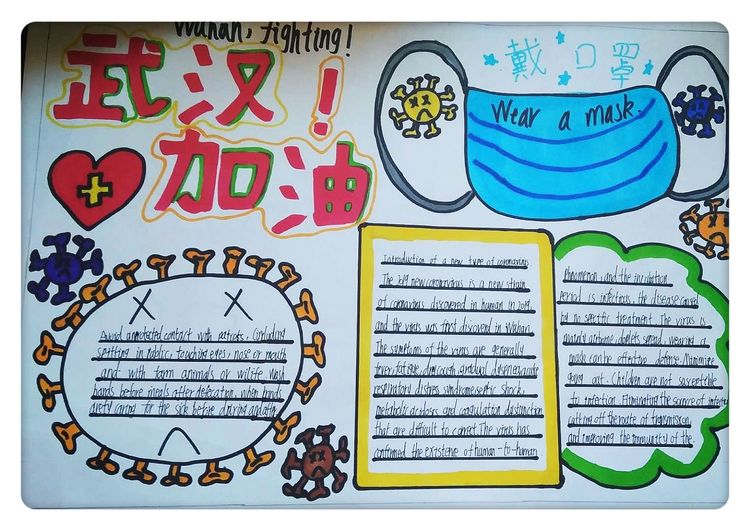 Wuhan, fighting!
武汉!
加油
戴口罩
Wear a mask.
Avoid unprotected contact with patients. (including
spitting in public, touching eyes, nose or mouth
and with farm animals or wildlife wash
hands before meals after defecation, when hands
caring for the sick before drinking and after
Introduction of a new type of coronavirus
The 2019 new coronavirus is a new strain
of coronavirus discovered in human in 2019.
and the virus was first discovered in Wuhan.
The symptoms of the virus are generally
fever, fatigue, dry cough, gradual dyspnea, acute
respiratory distress syndrome, septic shock,
metabolic acidosis, and coagulation dysfunction
that are difficult to correct. The virus has
confirmed the existence of human-to-human
phenomenon, and the incubation
period is infectious, the disease caused
by no specific treatment. The virus is
mainly airborne droplets spread, wearing a
mask can be effective defense. Minimize
going out. Children are not susceptible
to infection. Eliminating the source of infection
cutting off the route of transmission
and improving the immunity of the